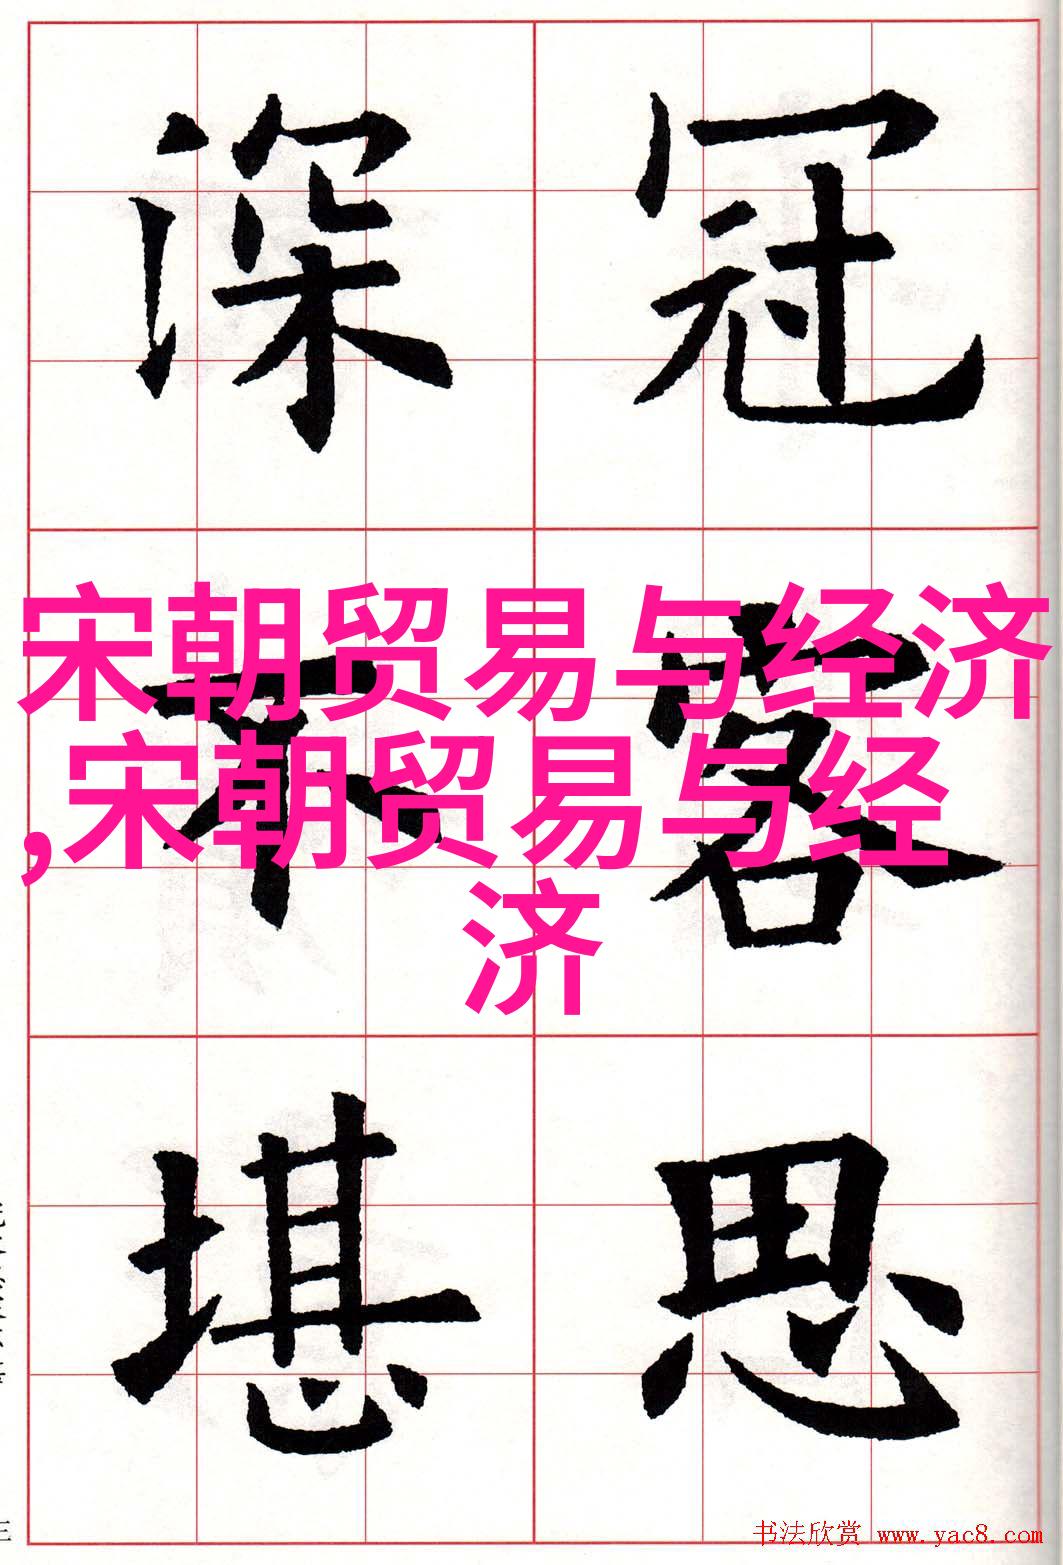 冠客思
深不堪
宋朝贸易与经济
,宋朝贸易与经
济
书法欣赏 www.yac8.com